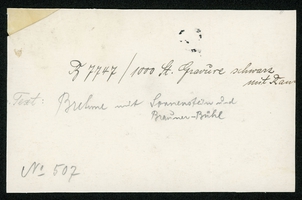 Z 7747 / 1000 St. Gravüre schwarz
mit Rand
Text: Brehme mit Sonnenstein und
Brauner-Bühl
No 507